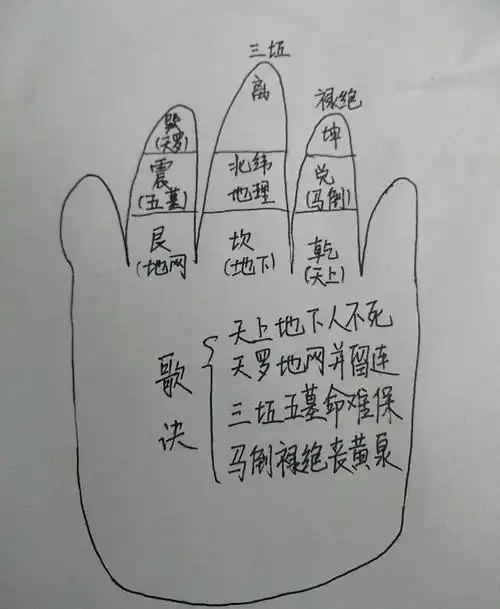 三坵
离
禄绝
坤
巽
(天罗)
震
(五墓)
北纬
地理
兑
(马倒)
艮
(地网
坎
(地下)
乾
(天上)
歌诀
天上地下人不死
天罗地网并留连
三坵五墓命难保
马倒禄绝丧黄泉